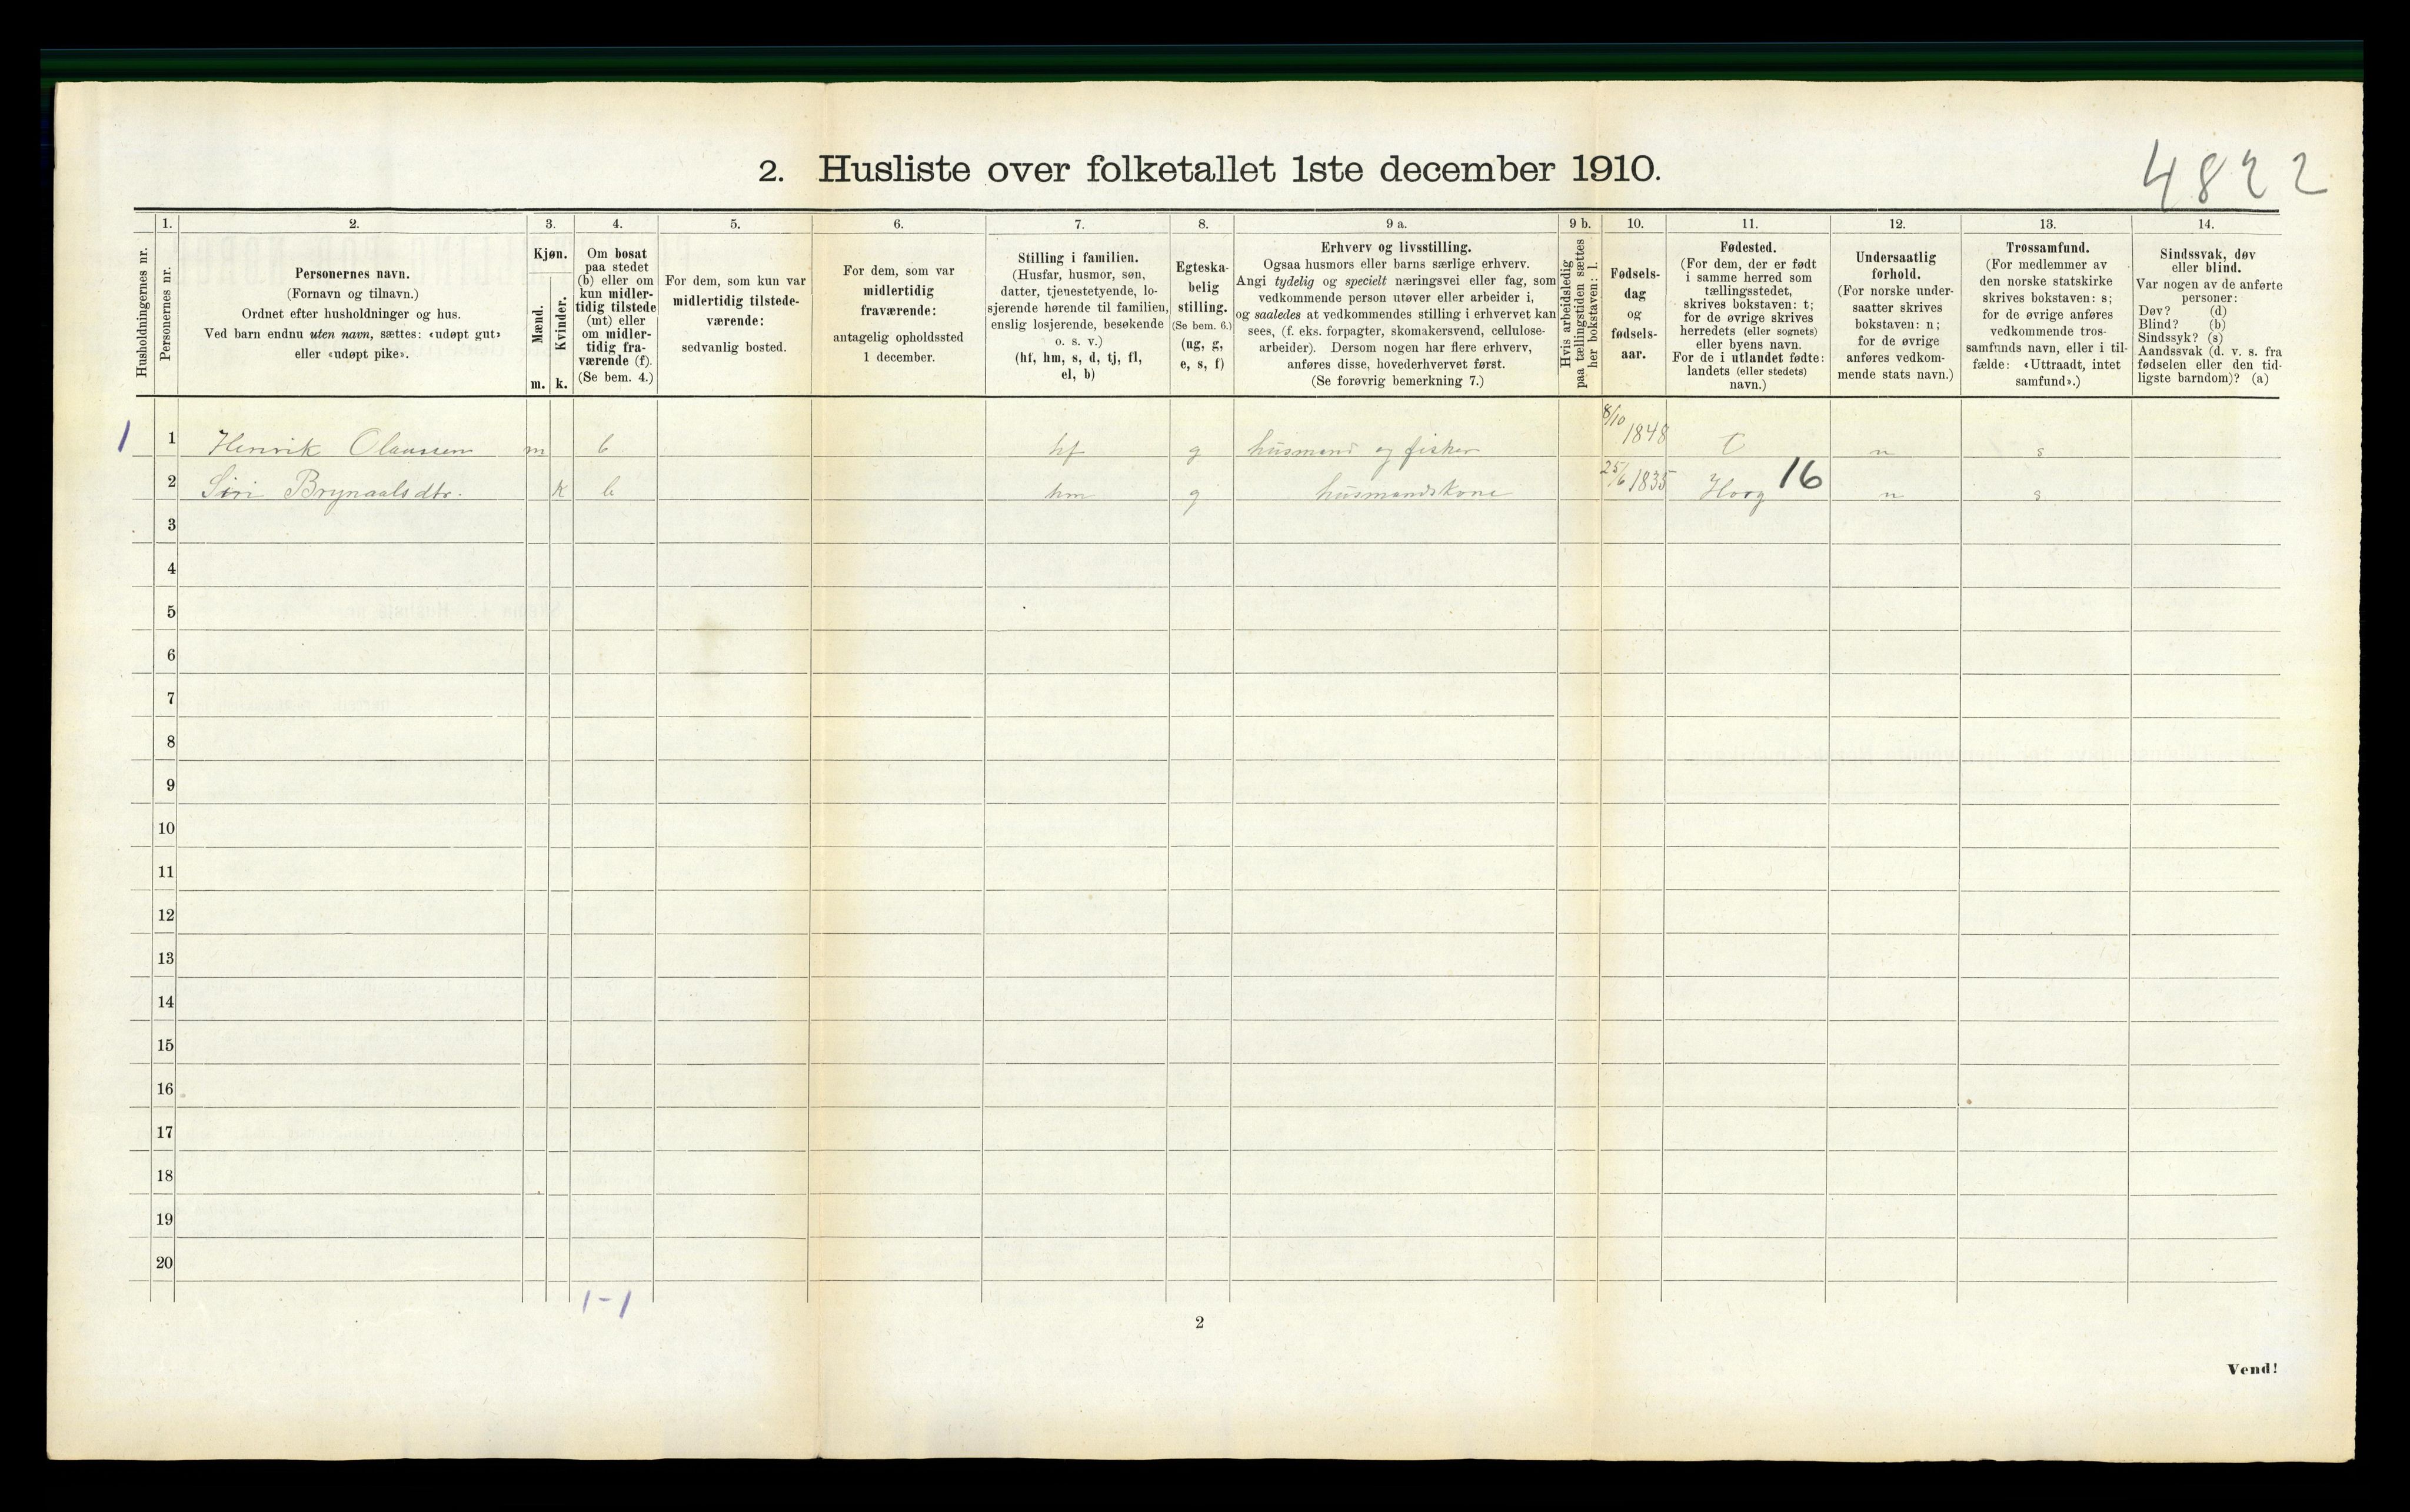 2. Husliste over folketallet 1ste december 1910.
4822
Husholdningernes nr.
1.
Personernes nr.
2.
Personernes navn.
(Fornavn og tilnavn.)
Ordnet efter husholdninger og hus.
Ved barn endnu uten navn, sættes: «udøpt gut»
eller «udøpt pike».
3.
Kjøn.
Mænd.
Kvinder.
m. k.
4.
Om bosat
paa stedet
(b) eller om
kun midler-
tidig tilstede
(mt) eller
om midler-
tidig fra-
værende (f).
(Se bem. 4.)
5.
For dem, som kun var
midlertidig tilstede-
værende:
sedvanlig bosted.
6.
For dem, som var
midlertidig
fraværende:
antagelig opholdssted
1 december.
7.
Stilling i familien.
(Husfar, husmor, søn,
datter, tjenestetyende, lo-
sjerende hørende til familien,
enslig losjerende, besøkende
o. s. v.)
(hf, hm, s, d, tj, fl,
el, b)
8.
Egteska-
belig
stilling.
(Se bem. 6.)
(ug, g,
e, s, f)
9 a.
Erhverv og livsstilling.
Ogsaa husmors eller barns særlige erhverv.
Angi tydelig og specielt næringsvei eller fag, som
vedkommende person utøver eller arbeider i,
og saaledes at vedkommendes stilling i erhvervet kan
sees, (f. eks. forpagter, skomakersvend, cellulose-
arbeider). Dersom nogen har flere erhverv,
anføres disse, hovederhvervet først.
(Se forøvrig bemerkning 7.)
9 b.
Hvis arbeidsledig
paa tællingstiden sættes
her bokstaven: l.
10.
Fødsels-
dag
og
fødsels-
aar.
11.
Fødested.
(For dem, der er født
i samme herred som
tællingsstedet,
skrives bokstaven: t;
for de øvrige skrives
herredets (eller sognets)
eller byens navn.
For de i utlandet fødte:
landets (eller stedets)
navn.)
12.
Undersaatlig
forhold.
(For norske under-
saatter skrives
bokstaven: n;
for de øvrige
anføres vedkom-
mende stats navn.)
13.
Trossamfund.
(For medlemmer av
den norske statskirke
skrives bokstaven: s;
for de øvrige anføres
vedkommende tros-
samfunds navn, eller i til-
fælde: «Uttraadt, intet
samfund».)
14.
Sindssvak, døv
eller blind.
Var nogen av de anførte
personer:
Døv? (d)
Blind? (b)
Sindssyk? (s)
Aandssvak (d. v. s. fra
fødselen eller den tid-
ligste barndom)? (a)
1 1 Henrik Olaussen m b hf g husmand og fisker 8/10 1848 t n s
2 Siri Brynaalsdtr. k b hm g husmandskone 25/6 1835 Horg 16 n s
3
4
5
6
7
8
9
10
11
12
13
14
15
16
17
18
19
20
1-1
2
Vend!